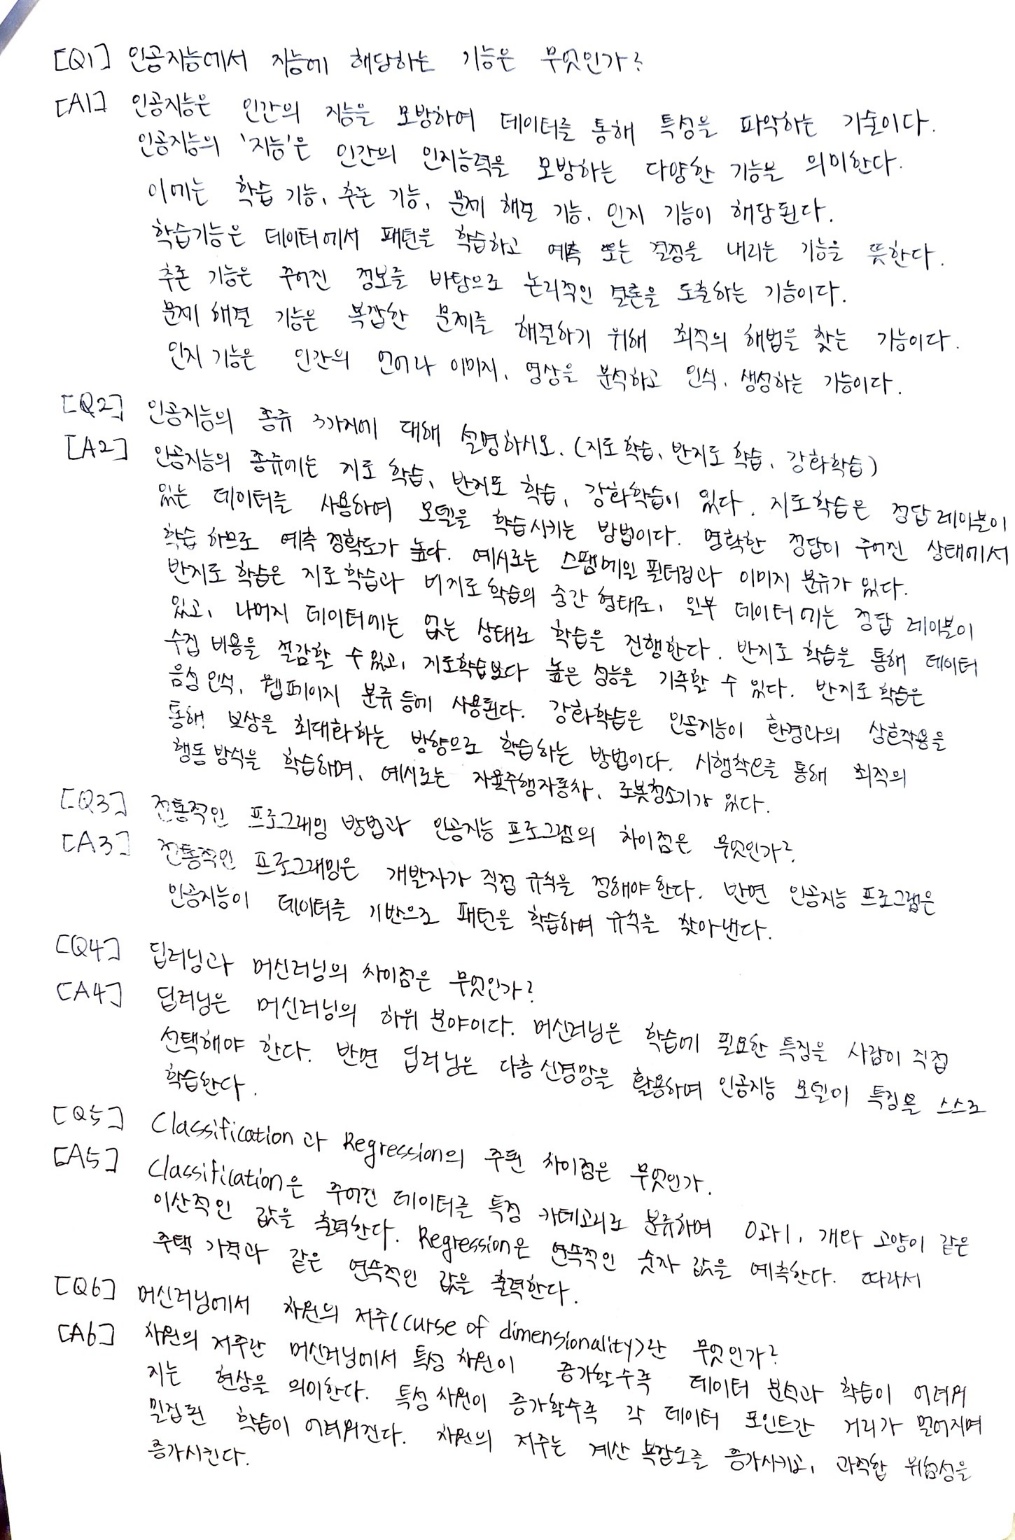 [Q1] 인공지능에서 지능에 해당하는 기능은 무엇인가?
[A1] 인공지능은 인간의 지능을 모방하여 데이터를 통해 특성을 파악하는 기술이다.
인공지능의 '지능'은 인간의 인지능력을 모방하는 다양한 기능을 의미한다.
이에는 학습 기능, 추론 기능, 문제 해결 기능, 인지 기능이 해당된다.
학습기능은 데이터에서 패턴을 학습하고 예측 또는 결정을 내리는 기능을 뜻한다.
추론 기능은 주어진 정보를 바탕으로 논리적인 결론을 도출하는 기능이다.
문제 해결 기능은 복잡한 문제를 해결하기 위해 최적의 해법을 찾는 기능이다.
인지 기능은 인간의 언어나 이미지, 영상을 분석하고 인식, 생성하는 기능이다.
[Q2] 인공지능의 종류 3가지에 대해 설명하시오. (지도 학습, 반지도 학습, 강화학습)
[A2] 인공지능의 종류에는 지도 학습, 반지도 학습, 강화학습이 있다. 지도학습은 정답 레이블이
있는 데이터를 사용하여 모델을 학습시키는 방법이다. 명확한 정답이 주어진 상태에서
학습 하므로 예측 정확도가 높다. 예시로는 스팸메일 필터링과 이미지 분류가 있다.
반지도 학습은 지도학습과 비지도 학습의 중간 형태로, 일부 데이터에는 정답 레이블이
있고, 나머지 데이터에는 없는 상태로 학습을 진행한다. 반지도 학습을 통해 데이터
수집 비용을 절감할 수 있고, 지도학습보다 높은 성능을 기록할 수 있다. 반지도 학습은
음성 인식, 웹페이지 분류 등에 사용된다. 강화학습은 인공지능이 환경과의 상호작용을
통해 보상을 최대화하는 방향으로 학습하는 방법이다. 시행착오를 통해 최적의
행동 방식을 학습하며, 예시로는 자율주행자동차, 로봇청소기가 있다.
[Q3] 전통적인 프로그래밍 방법과 인공지능 프로그램의 차이점은 무엇인가?
[A3] 전통적인 프로그래밍은 개발자가 직접 규칙을 정해야 한다. 반면 인공지능 프로그램은
인공지능이 데이터를 기반으로 패턴을 학습하여 규칙을 찾아낸다.
[Q4] 딥러닝과 머신러닝의 차이점은 무엇인가?
[A4] 딥러닝은 머신러닝의 하위 분야이다. 머신러닝은 학습에 필요한 특징을 사람이 직접
선택해야 한다. 반면 딥러닝은 다층 신경망을 활용하여 인공지능 모델이 특징을 스스로
학습한다.
[Q5] Classification과 Regression의 주된 차이점은 무엇인가.
[A5] Classification은 주어진 데이터를 특정 카테고리로 분류하여 0과1, 개나 고양이 같은
이산적인 값을 출력한다. Regression은 연속적인 숫자 값을 예측한다. 따라서
주택 가격과 같은 연속적인 값을 출력한다.
[Q6] 머신러닝에서 차원의 저주(curse of dimensionality)란 무엇인가?
[A6] 차원의 저주란 머신러닝에서 특성 차원이 증가할수록 데이터 분석과 학습이 어려워
지는 현상을 의미한다. 특성 차원이 증가할수록 각 데이터 포인트간 거리가 멀어지며
밀집된 학습이 어려워진다. 차원의 저주는 계산 복잡도를 증가시키고, 과적합 위험성을
증가시킨다.